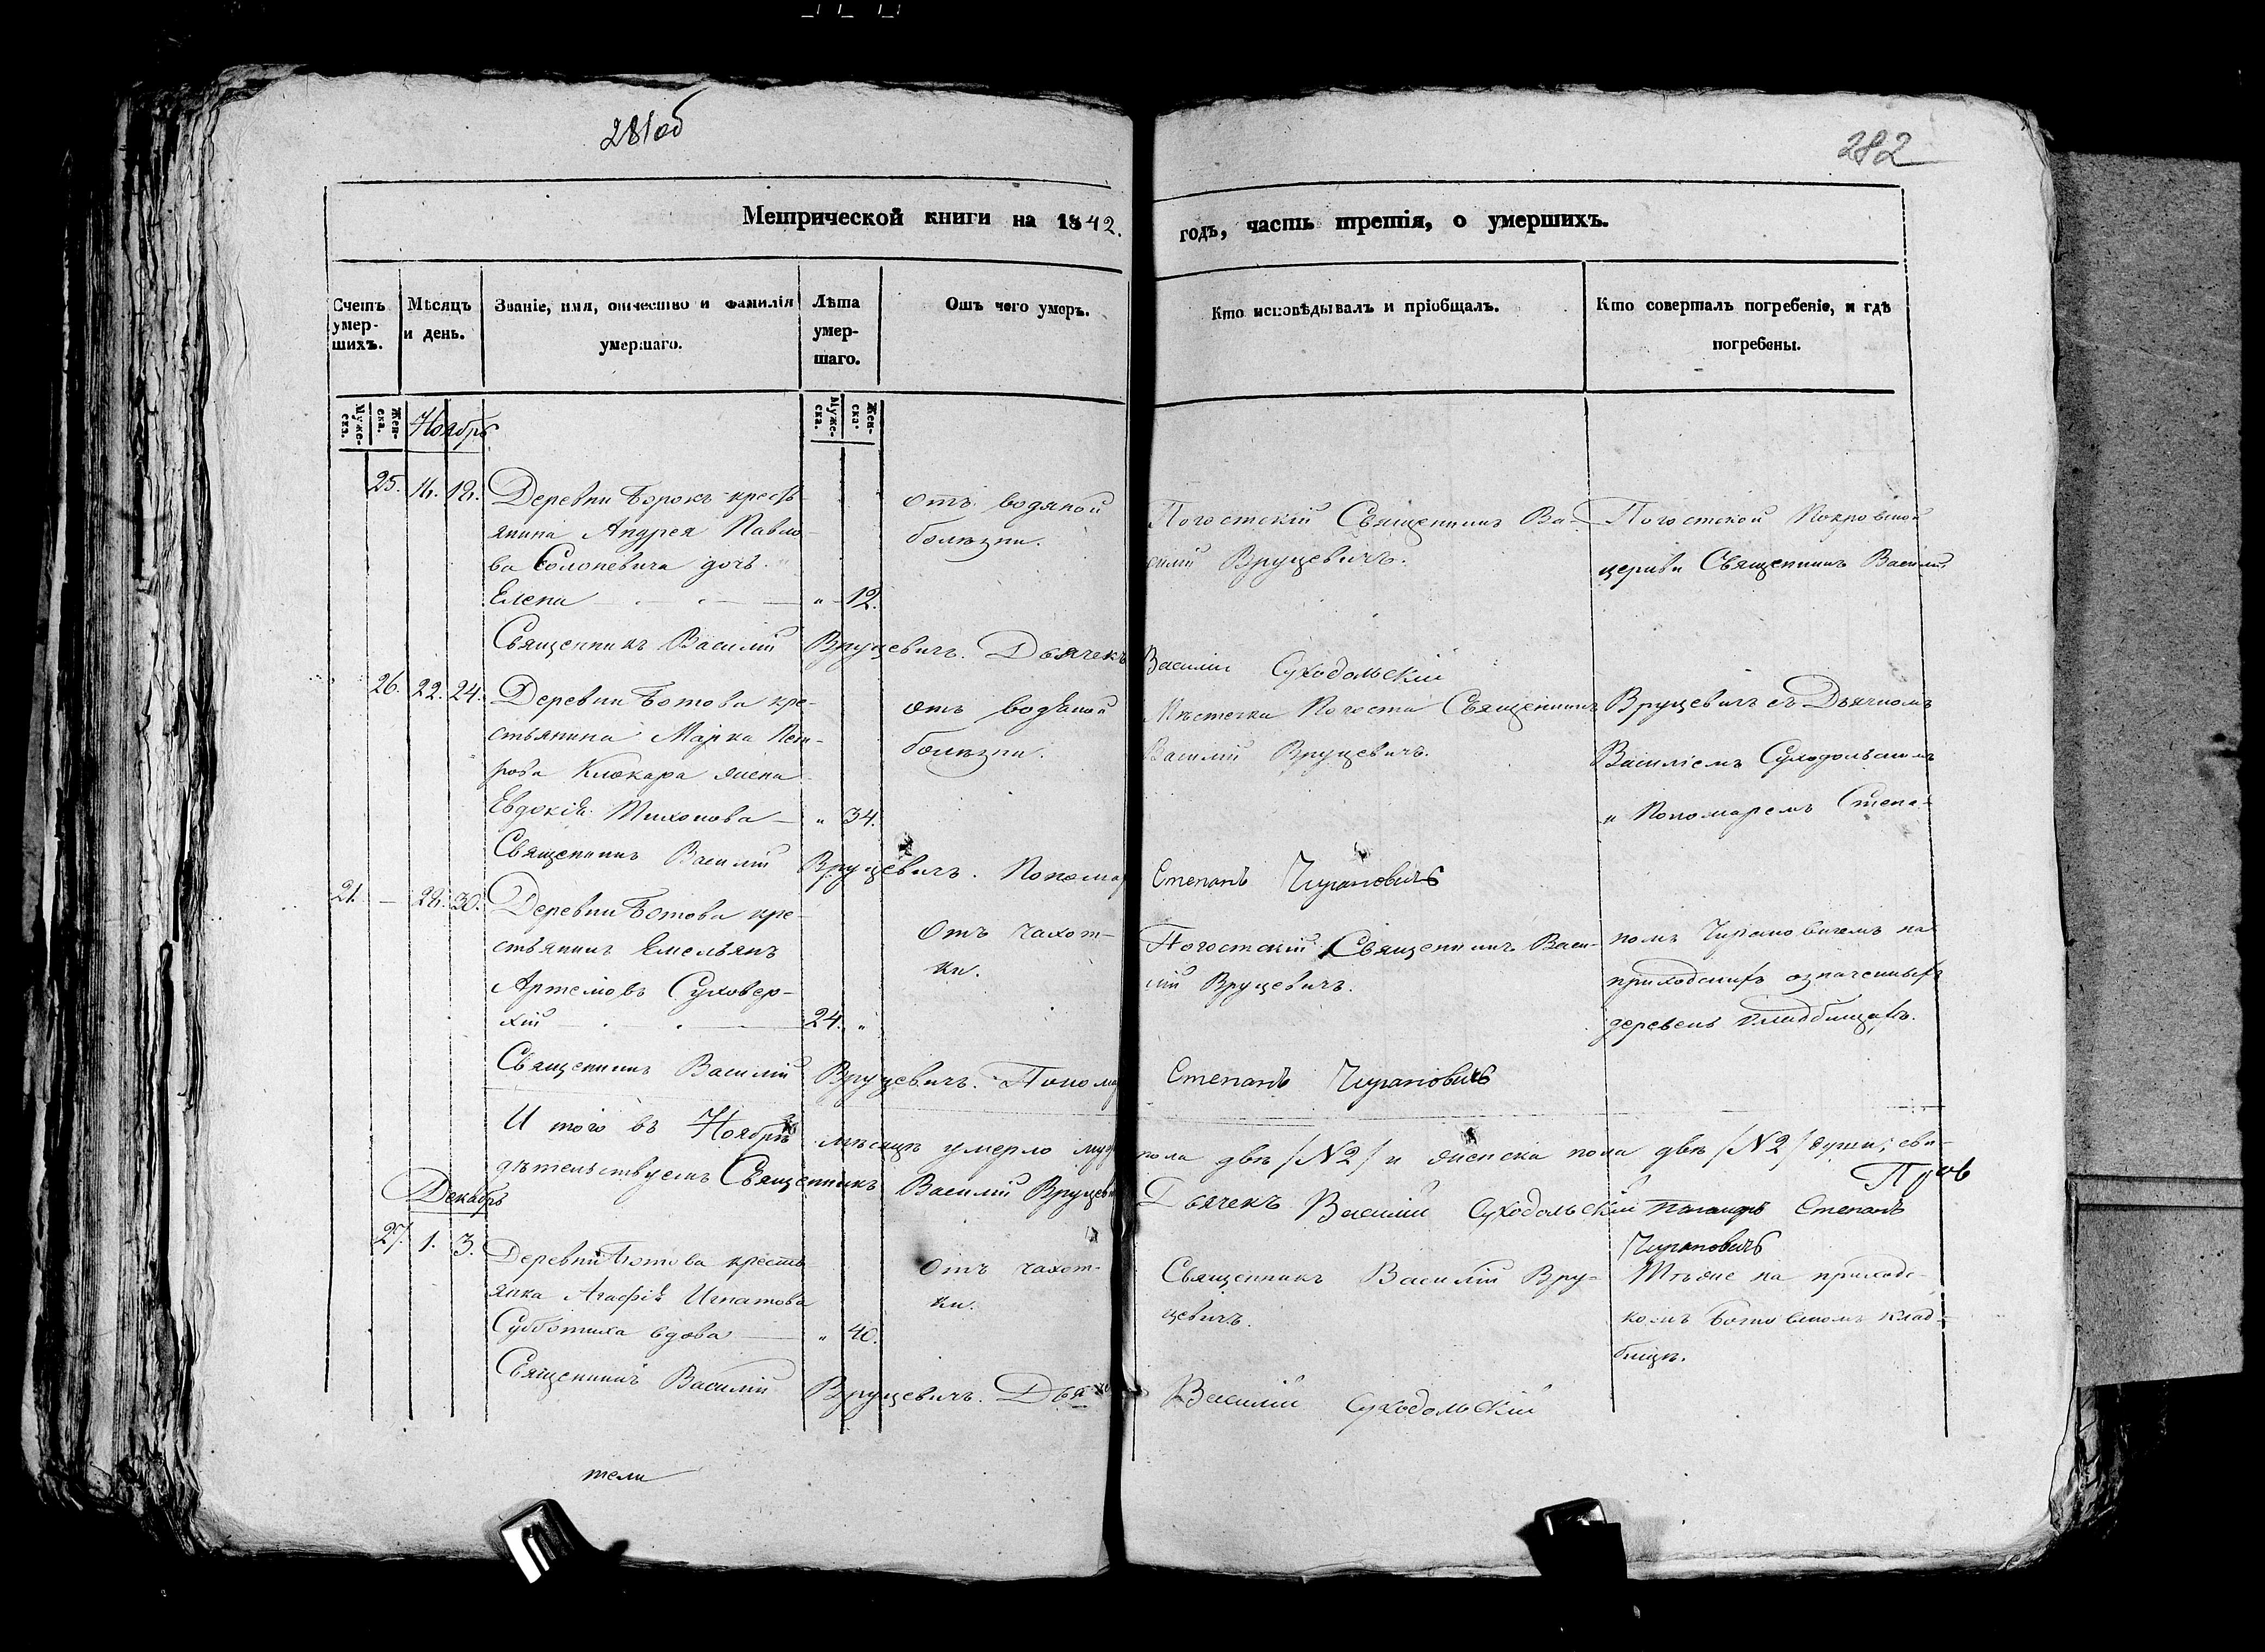 281об
282
Метрической книги на 1842.
годъ, часть третія, о умершихъ.
Счетъ умер-шихъ.
Мѣсяцъ и день.
Званіе, имя, отчество и фамилія умершаго.
Лѣта умер-шаго.
Отъ чего умеръ.
Кто исповѣдывалъ и пріобщалъ.
Кто совершалъ погребеніе, и гдѣ погребены.
Муже-ска.
Жен-ска.
Муже-ска.
Жен-ска.
Ноябрь
25. 16. 18. Деревни Борокъ кресть-
янина Андрея Павло-
ва Солоневича дочь
Елена " 12.
отъ водяной
болѣзни.
Погостскій Священникъ Ва-
силій Вруцевичъ.
Погостской Покровской
церкви Священникъ Василій
Священникъ Василій Вруцевичъ. Дьячекъ Василій Суходольскій
26. 22. 24. Деревни Ботова кре-
стьянина Марка Пет-
рова Клюкара жена
Евдокія Тихонова " 34.
отъ водяной
болѣзни.
Мѣстечка Погоста Священникъ
Василій Вруцевичъ.
Вруцевичъ съ Дьячкомъ
Василіемъ Суходольскимъ
и Пономаремъ Степа-
Священникъ Василій Вруцевичъ. Пономар Степанъ Чирановичъ
21. — 28. 30. Деревни Ботова кре-
стьянинъ Емельянъ
Артемовъ Суховер-
хій 24. "
Отъ чахот-
ки.
Погостскій Священникъ Васи-
лій Вруцевичъ.
номъ Чирановичемъ на
приходскихъ означенныхъ
деревень кладбищахъ.
Священникъ Василій Вруцевичъ. Понома Степанъ Чирановичъ
И того въ Ноябрѣ мѣсяцѣ умерло муж пола двѣ /№2/ и женска пола двѣ /№2/ души; сви-
дѣтельствуемъ Священникъ Василій Вруцеви Дьячекъ Василій Суходольскій Степанъ
Чирановичъ
Декабрь
27. 1. 3. Деревни Ботова кресть-
янка Агафія Игнатова
Субботиха вдова " 40.
Отъ чахот-
ки.
Священникъ Василій Вру-
цевичъ.
Тѣже на приходс-
комъ Ботовскомъ клад-
бищѣ.
Священникъ Василій Вруцевичъ. Дьяч Василій Суходольскій
тели